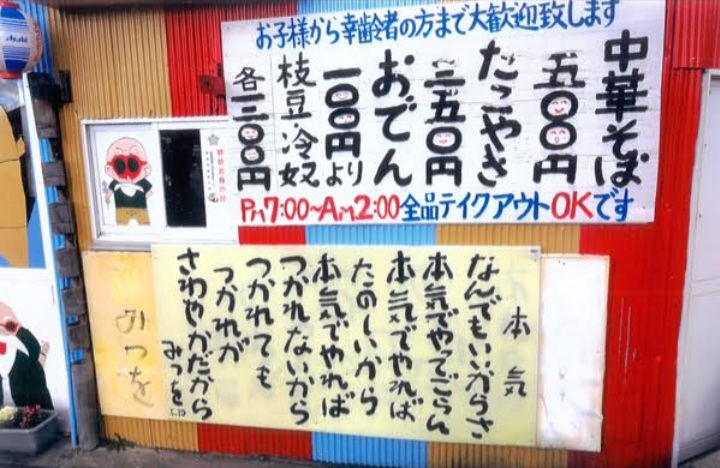 お子様から幸齢者の方まで大歓迎致します
中華そば
五〇〇円
たこやき
三五〇円
おでん
一〇〇円より
枝豆 冷奴
各三〇〇円
PM7:00~AM2:00 全品テイクアウトOKです
本気
なんでもいいからさ
本気でやってごらん
本気でやれば
たのしいから
本気でやれば
つかれないから
つかれても
つかれが
さわやかだから
みつを
みつを
Asahi